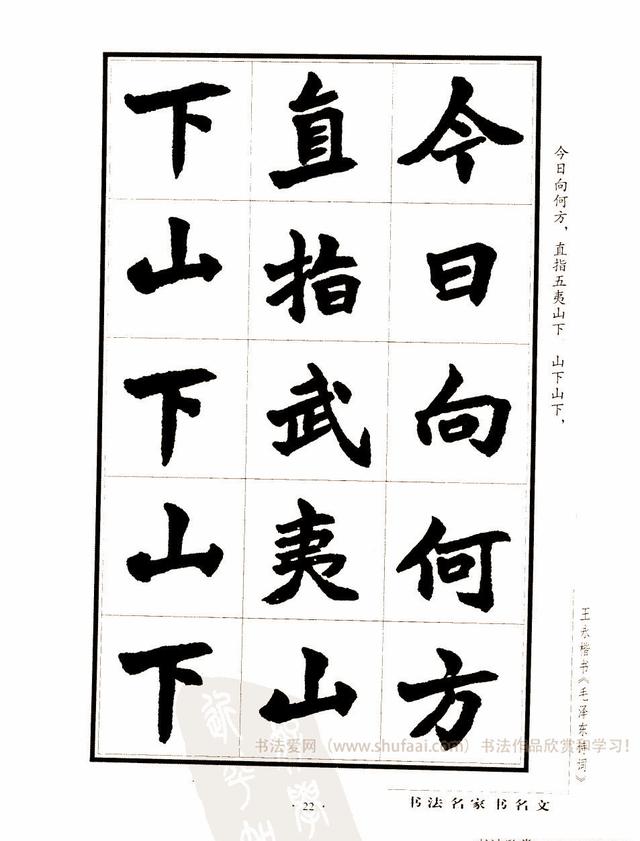 今日向何方
直指武夷山
下山下山下
今日向何方，直指五夷山下 山下山下，
王永楷书《毛泽东诗词》
书法爱网（www.shufaai.com）书法作品欣赏和学习！
·22·
书法名家书名文